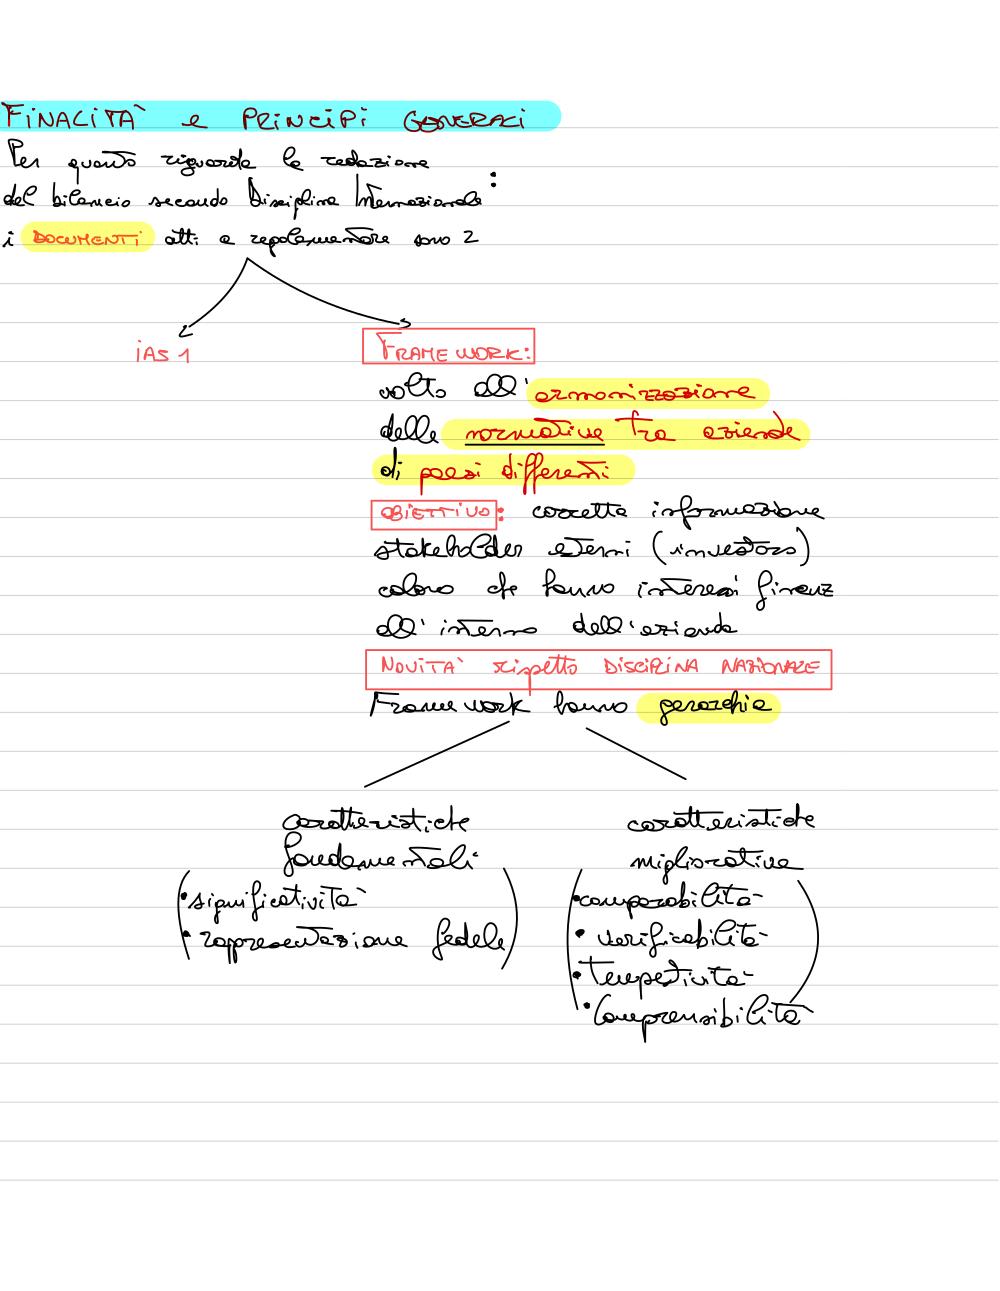 FINALITÀ e PRINCIPI GENERALI
Per quanto riguarda la redazione
del bilancio secondo Disciplina Internazionale :
i DOCUMENTI atti a regolamentare sono 2
IAS 1
FRAMEWORK:
volto all'armonizzazione
delle normative tra aziende
di paesi differenti
OBIETTIVO: corretta informazione
stakeholder esterni (investors)
coloro che hanno interessi finanz
all'interno dell'azienda
NOVITA' rispetto DISCIPLINA NAZIONALE
Framework hanno gerarchia
caratteristiche
fondamentali
(• significatività
• rappresentazione fedele)
caratteristiche
migliorative
(• comparabilità
• verificabilità
• Tempestività
• Comprensibilità)